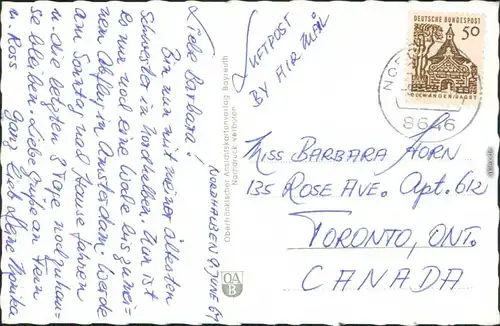 NORDHALBEN 9. JUNE 64
Liebe Barbara!
Bin nun mit meiner ältesten
Schwester in Nordhalben. Nun ist
es nur noch eine Woche bis zu mei-
nem Abflug in Amsterdam. Werde
am Sonntag nach Hause fahren
u. die letzten 8 Tage noch zuhau-
se bleiben. Liebe Grüße an Fran
u. Ross
Ganz herzl. Deine Monika
Oberfränkischer Ansichtskartenverlag Bayreuth
Nachdruck verboten
OA
B
LUFTPOST
BY AIR MAIL
DEUTSCHE BUNDESPOST
50
ELLWANGEN/JAGST
8646
Miss BARBARA HORN
135 ROSE AVE. Apt. 612
TORONTO, ONT.
CANADA